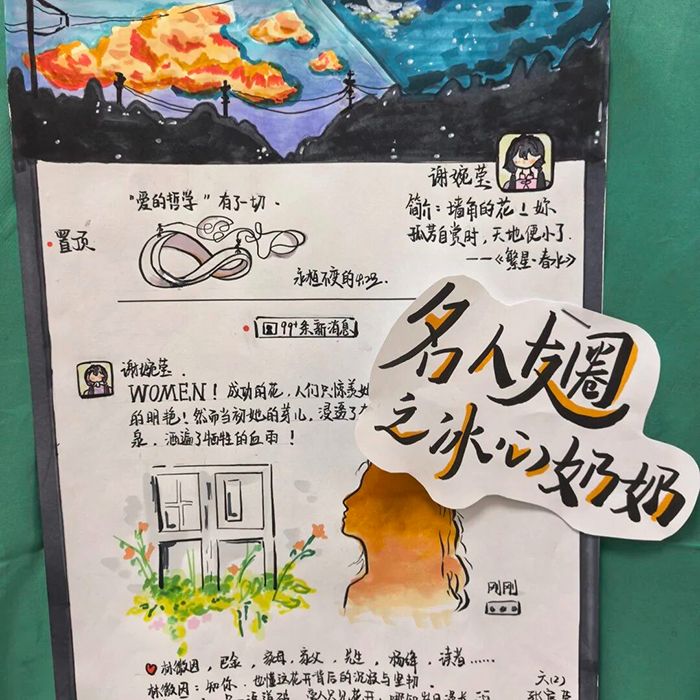 谢婉莹
简介：墙角的花！妳
孤芳自赏时，天地便小了.
——《繁星·春水》
"爱的哲学"有了一切.
置顶
99+条新消息
名人友圈
之冰心奶奶
谢婉莹.
WOMEN！成功的花，人们只惊羡她
的明艳！然而当初她的芽儿，浸透了
泉，洒遍了牺牲的血雨！
刚刚
林徽因，巴金，家母，家父，先生，杨绛，读者……
林徽因：知你，也懂这花开背后的沉寂与坚韧.